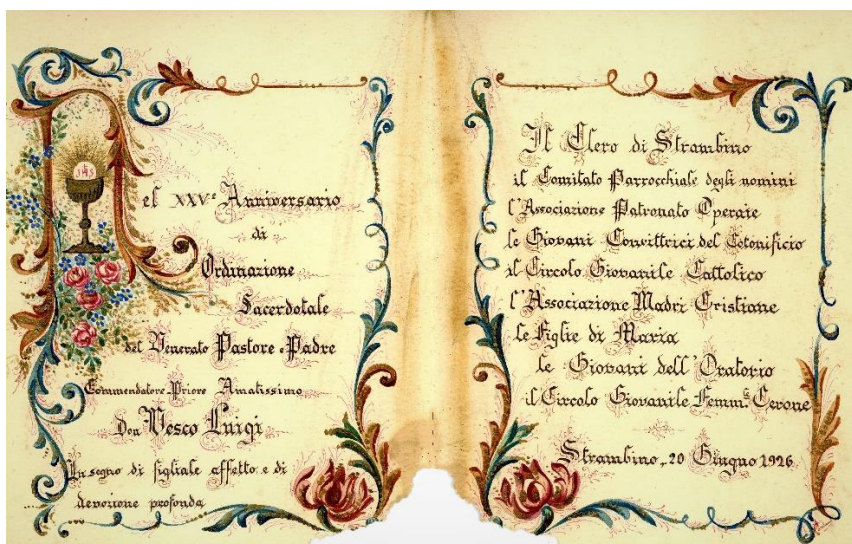 Nel XXVº Anniversario
di
Ordinazione
Sacerdotale
del Venerato Pastore e Padre
Commendatore Priore Amatissimo
Don Vesco Luigi
In segno di figliale affetto e di
devozione profonda
IHS
Il Clero di Strambino
il Comitato Parrocchiale degli uomini
l'Associazione Patronato Operaie
le Giovani Convittrici del Cotonificio
il Circolo Giovanile Cattolico
l'Associazione Madri Cristiane
le Figlie di Maria
le Giovani dell'Oratorio
il Circolo Giovanile Femm.le Cerone
Strambino, 20 Giugno 1926